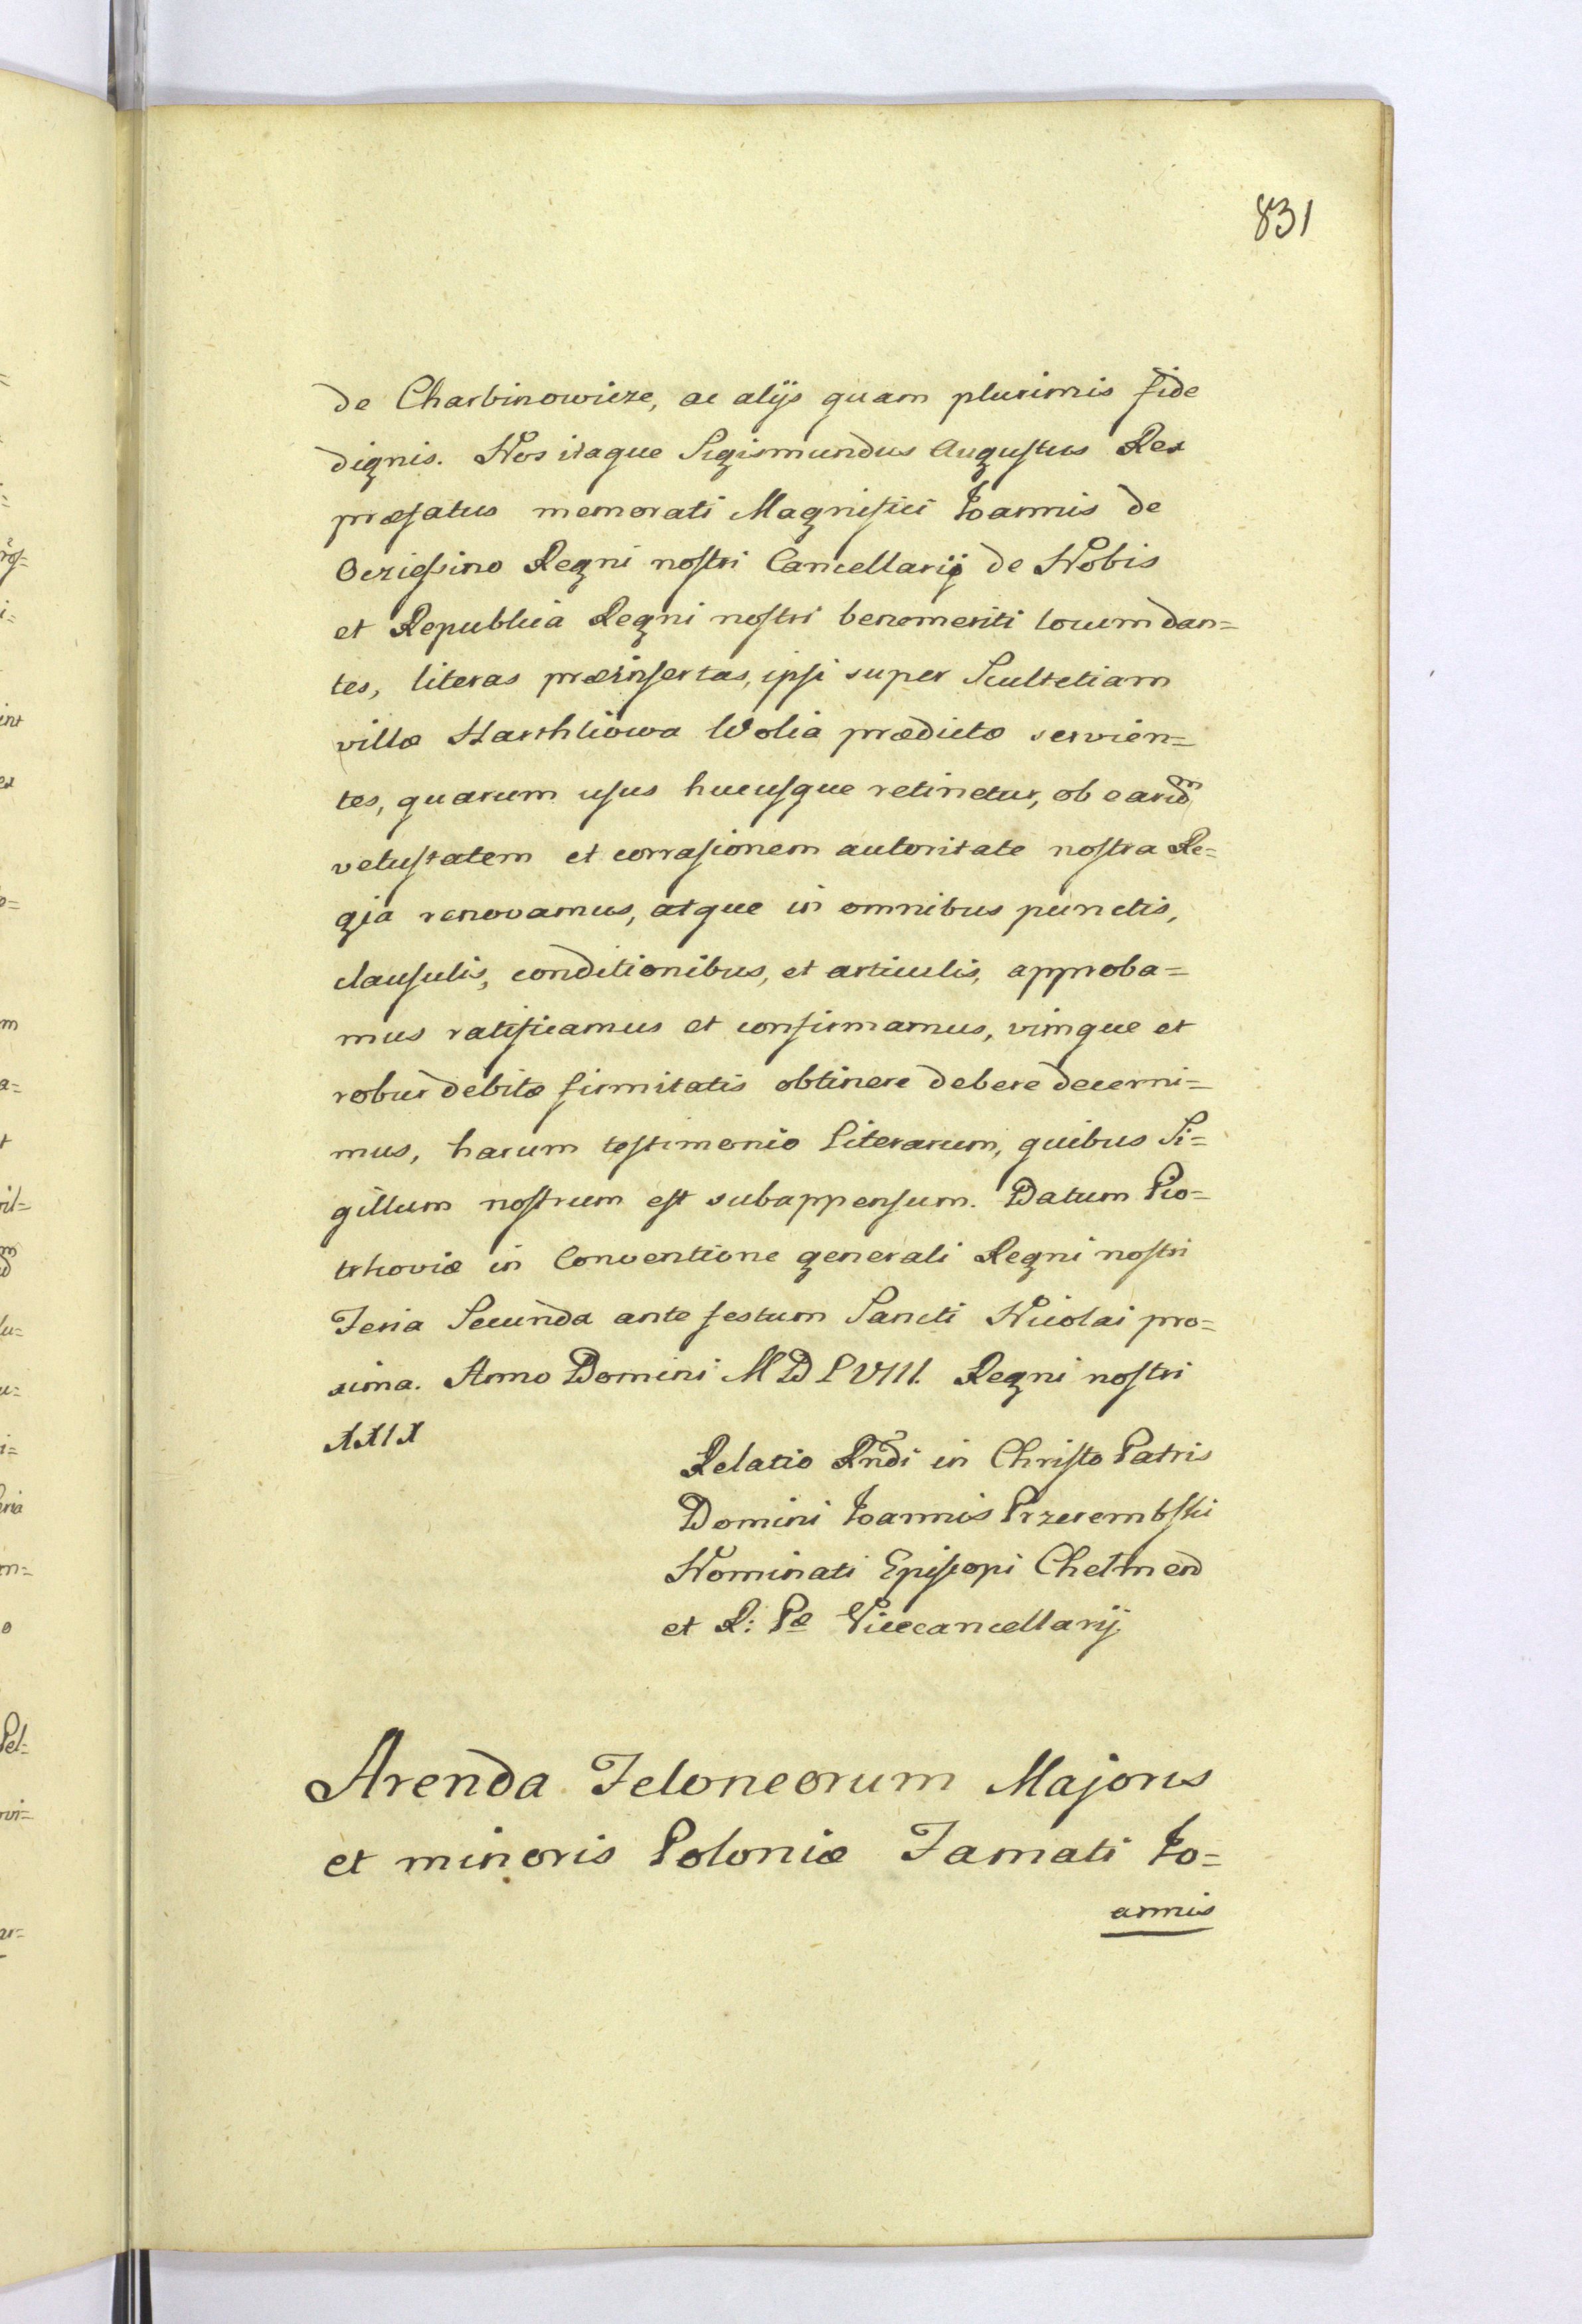 831
de Charbinowicze, ac alijs quam plurimis fide
dignis. Nos itaque Sigismundus Augustus Rex
præfatus memorati Magnifici Joannis de
Oczieszino Regni nostri Cancellarij de Nobis
et Republica Regni nostri benemeriti locum dan=
tes, literas præinsertas, ipsi super Scultetiam
villæ Harkhliowa Wolia prædictæ servien=
tes, quarum usus hucusque retinetur, ob earūdm
vetustatem et corrasionem autoritate nostra Re=
gia renovamus, atque in omnibus punctis,
clausulis, conditionibus, et articulis, approba=
mus ratificamus et confirmamus, vimque et
robur debitæ firmitatis obtinere debere decerni=
mus, harum testimonio literarum, quibus Si=
gillum nostrum est subappensum. Datum Pio=
trkoviæ in Conventione generali Regni nostri
Feria Secunda ante festum Sancti Nicolai pro=
xima. Anno Domini MDLVIII. Regni nostri
XXIX
Relatio Rndi in Christo Patris
Domini Joannis Przerembski
Nominati Episcopi Chelmen
et R: Pæ Vicecancellarij.
Arenda Teloneorum Majoris
et minoris Poloniæ Famati Jo=
annis